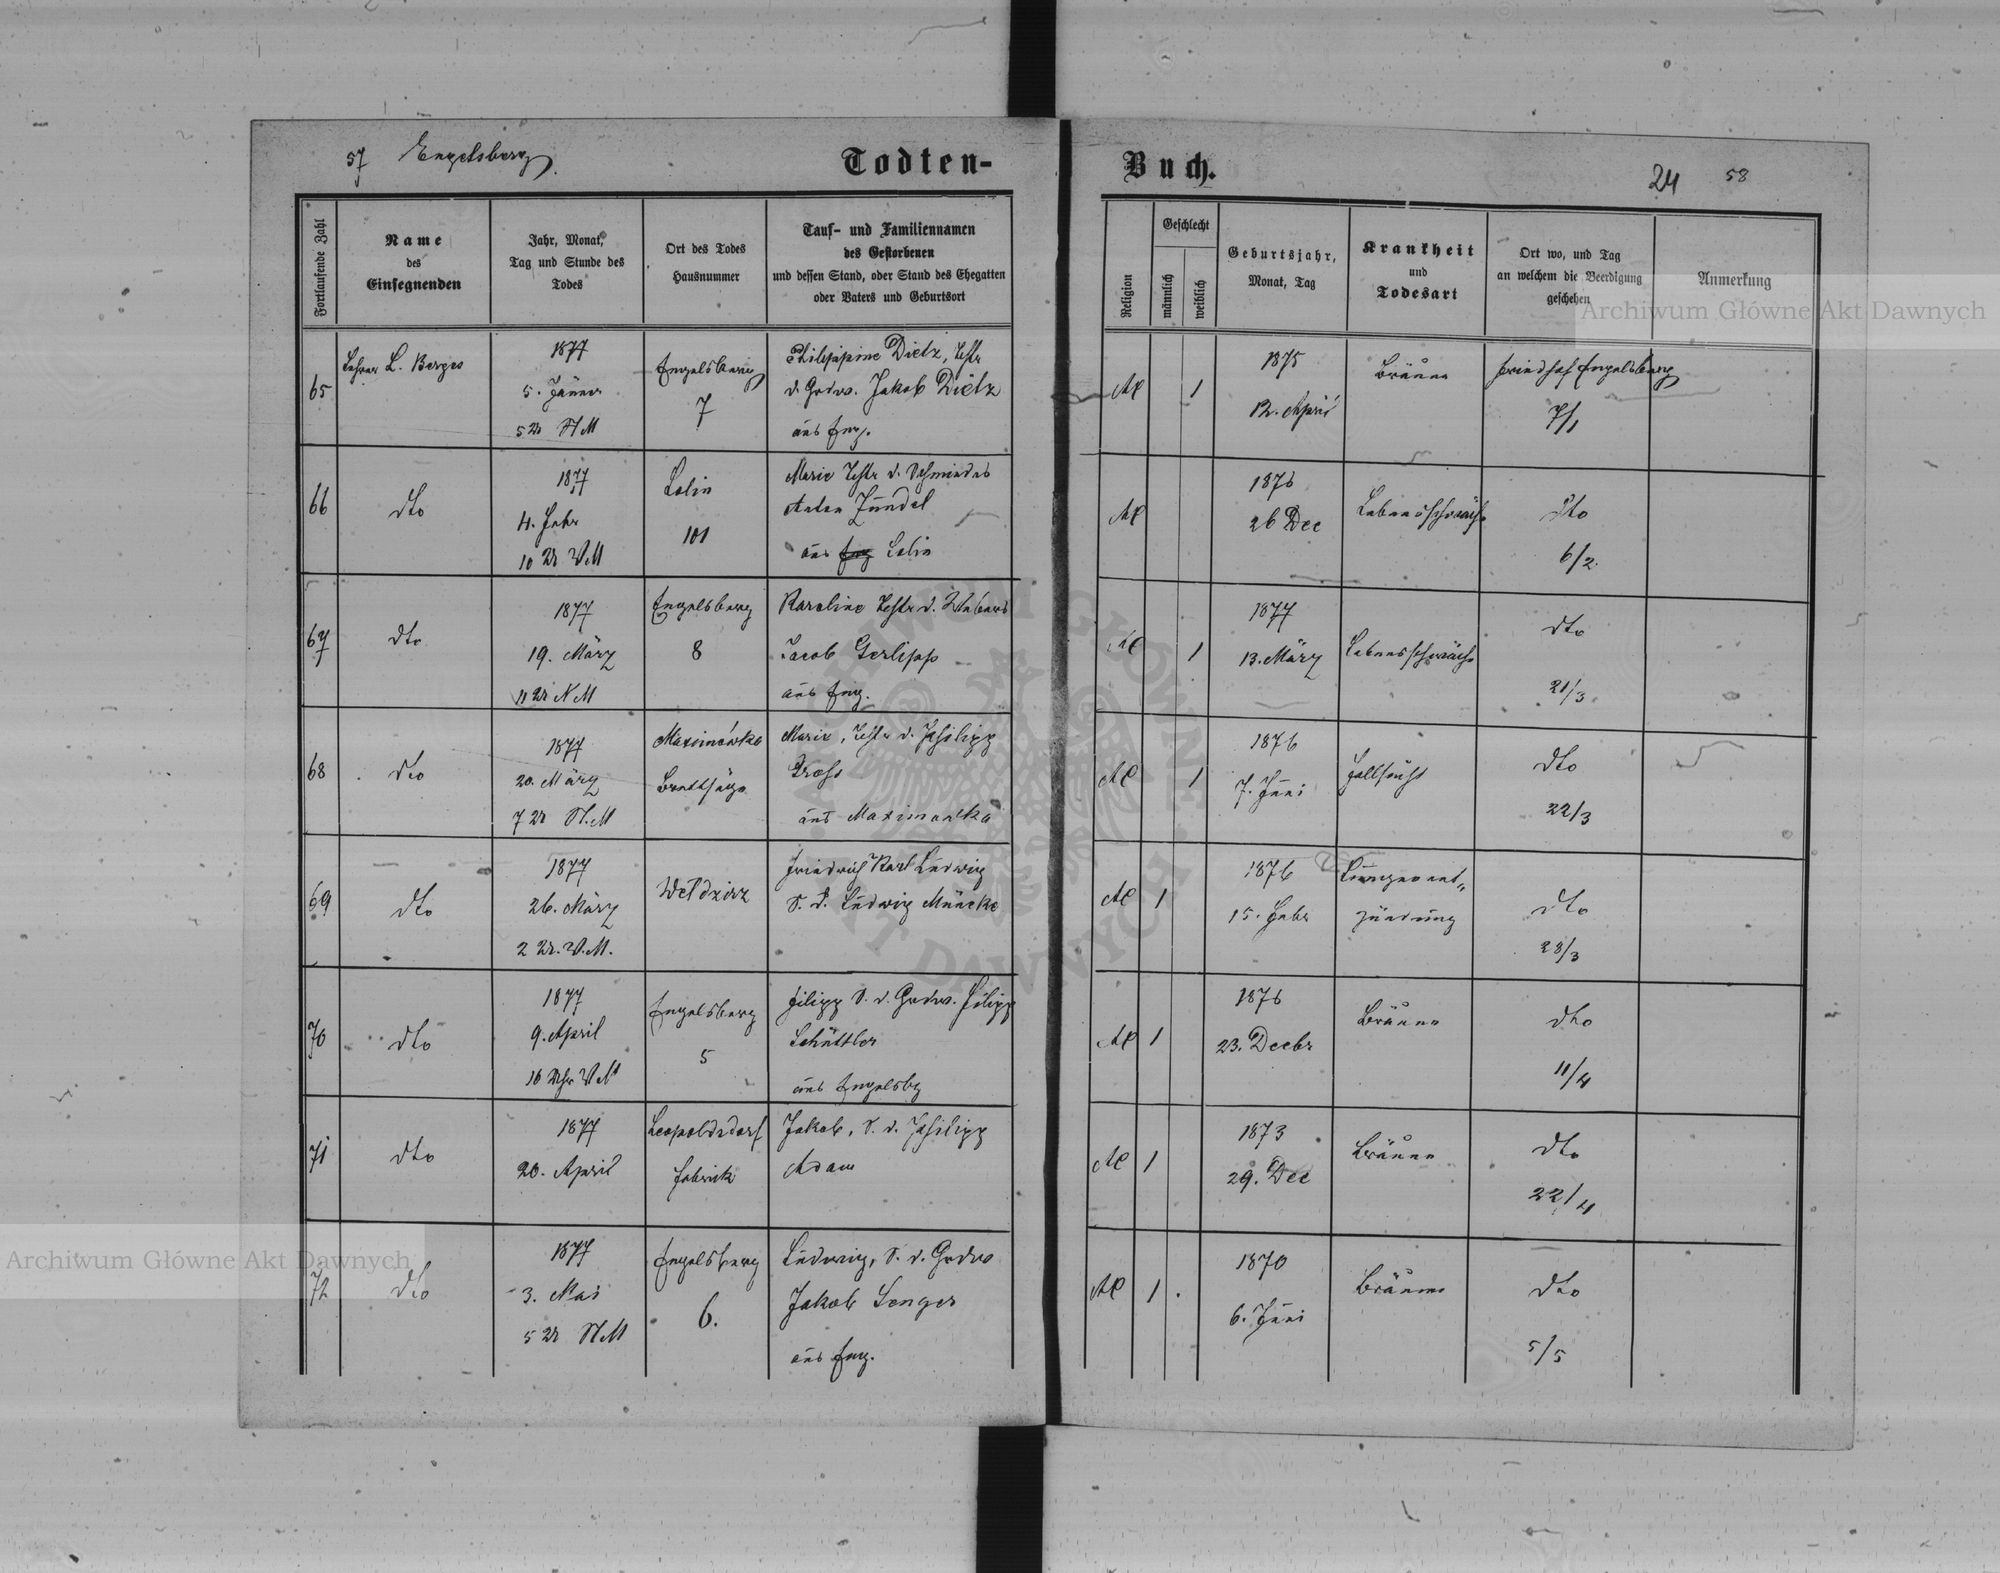 57 Engelsberg
Todten-
Buch.
24 58
Fortlaufende Zahl
Name
des
Einsegnenden
Jahr, Monat,
Tag und Stunde des
Todes
Ort des Todes
Hausnummer
Tauf- und Familiennamen
des Gestorbenen
und dessen Stand, oder Stand des Ehegatten
oder Vaters und Geburtsort
Religion
Geschlecht
männlich
weiblich
Geburtsjahr,
Monat, Tag
Krankheit
und
Todesart
Ort wo, und Tag
an welchem die Beerdigung
geschehen
Anmerkung
Archiwum Główne Akt Dawnych
65
Lehrer L. Berges
1877
5. Jänner
5 Ur NM
Engelsberg
7
Philippine Dietz, Tchtr
d. Grdw. Jakob Dietz
aus Eng.
AC
1
1875
12. April
Bräune
Friedhof Engelsberg
7/1
66
dto
1877
4. Febr
10 Ur VM
Lolin
101
Marie Tchtr d. Schmiedes
Anton Zündel
aus Eng Lolin
AC
1876
26 Dec
Lebensschwäche
dto
6/2.
67
dto
1877
19. März
11 Ur NM
Engelsberg
8
Karoline Tchtr d. Webers
Jacob Gerlipp
aus Eng.
AC
1
1877
13. März
Lebensschwäche
dto
21/3
68
dto
1877
20. März
7 Ur N.M
Maximówka
Brettsäge
Marie, Tchtr d. Philipp
aus Maximowka
AC
1
1876
7. Juni
dto
22/3
69
dto
1877
26. März
2 Ur. V.M.
Wełdzirz
Friedrich Karl Ludwig
S. d. Ludwig Müncke
AC
1
1876
15. Febr
Lungenent-
zündung
dto
28/3
70
dto
1877
9. April
10 Uhr VM
Engelsberg
5
Filipp S. d. Grdw. Filipp
Schüttler
aus Engelsbg
AC
1
1876
23. Decbr
Bräune
dto
11/4
71
dto
1877
20. April
Leopoldsdorf
Fabrick
Jakob, S. d. Philipp
Adam
AC
1
1873
29. Dec
Bräune
dto
22/4
72
dto
1877
3. Mai
5 Ur NM
Engelsberg
6.
Ludwig, S. d. Grdw
Jakob Senger
aus Eng.
AC
1
1870
6. Juni
Bräune
dto
5/5
Archiwum Główne Akt Dawnych
ARCHIWUM GŁÓWNE AKT DAWNYCH